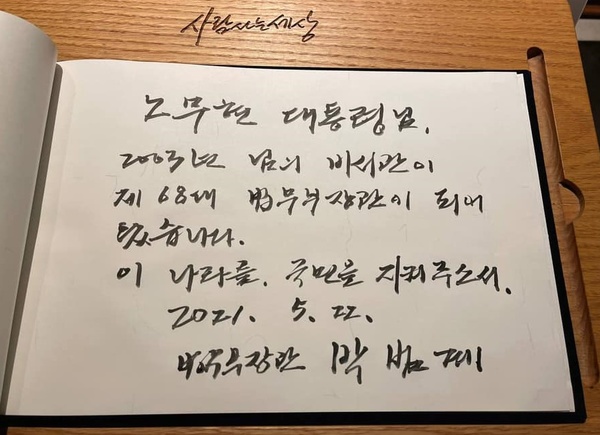 사람사는세상
노무현 대통령님.
2003년 님의 비서관이
제 68대 법무부장관이 되어
뵙습니다.
이 나라를, 국민을 지켜주소서.
2021. 5. 22.
법무부장관 박 범 계